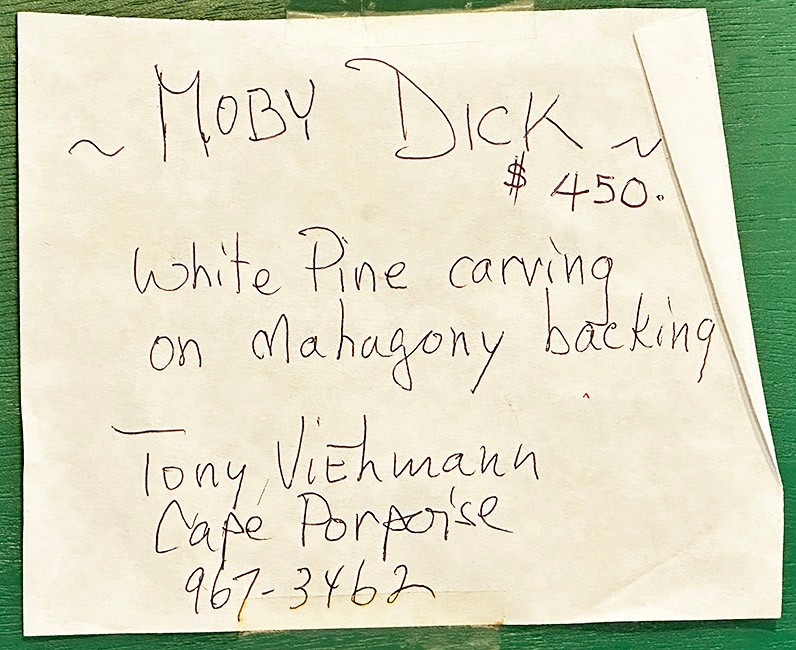 ~ MOBY DICK ~
$ 450.
White Pine carving
on Mahagony backing
Tony Viehmann
Cape Porpoise
967-3462